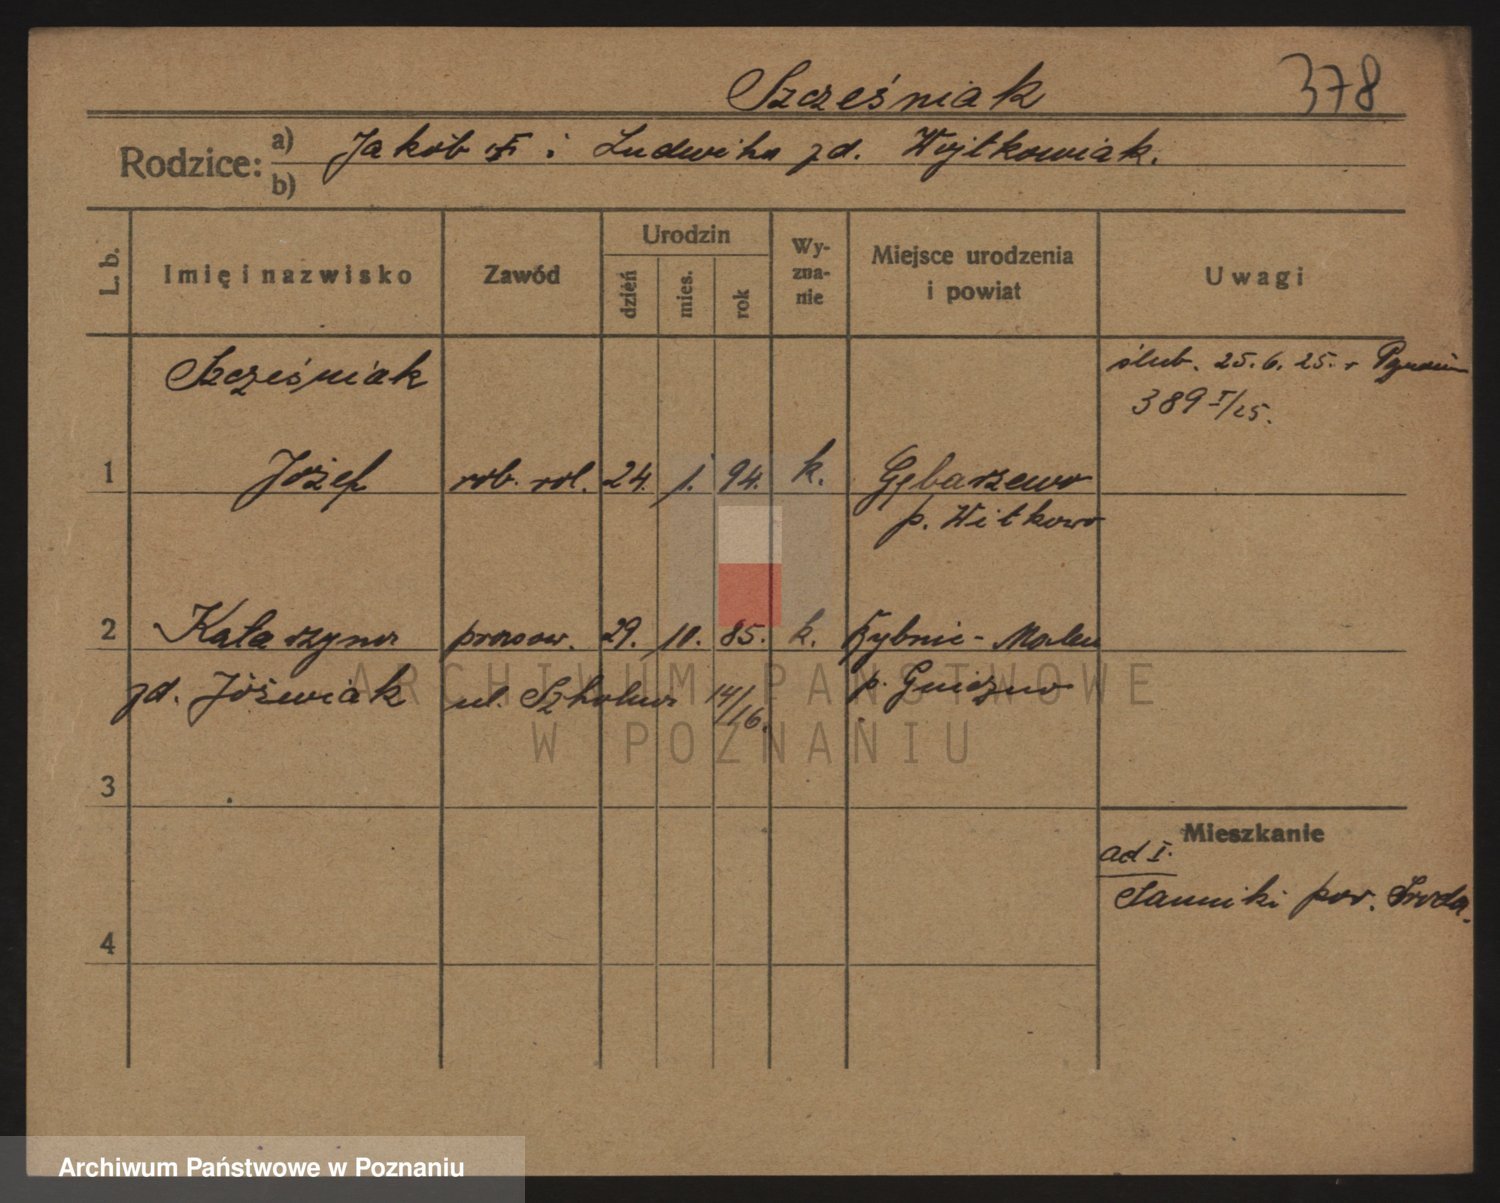 Szcześniak
378
Rodzice: a) Jakób i Ludwika zd. Wojtkowiak.
b)
L. b.
Imię i nazwisko
Zawód
Urodzin
dzień
mies.
rok
Wy-
zna-
nie
Miejsce urodzenia
i powiat
Uwagi
Szcześniak
ślub. 25.6.25. r
389 I/25.
1 Józef rob. rol. 24. 1. 94. k. Gębarzewo
p. Witkowo
2 Katarzyna pracow. 29. 10. 85. k.
zd. Jóźwiak ul. Szkolna 14/16. p. Gniezno
3
Mieszkanie
ad I.
pow. Środa.
4
ARCHIWUM PAŃSTWOWE
W POZNANIU
Archiwum Państwowe w Poznaniu